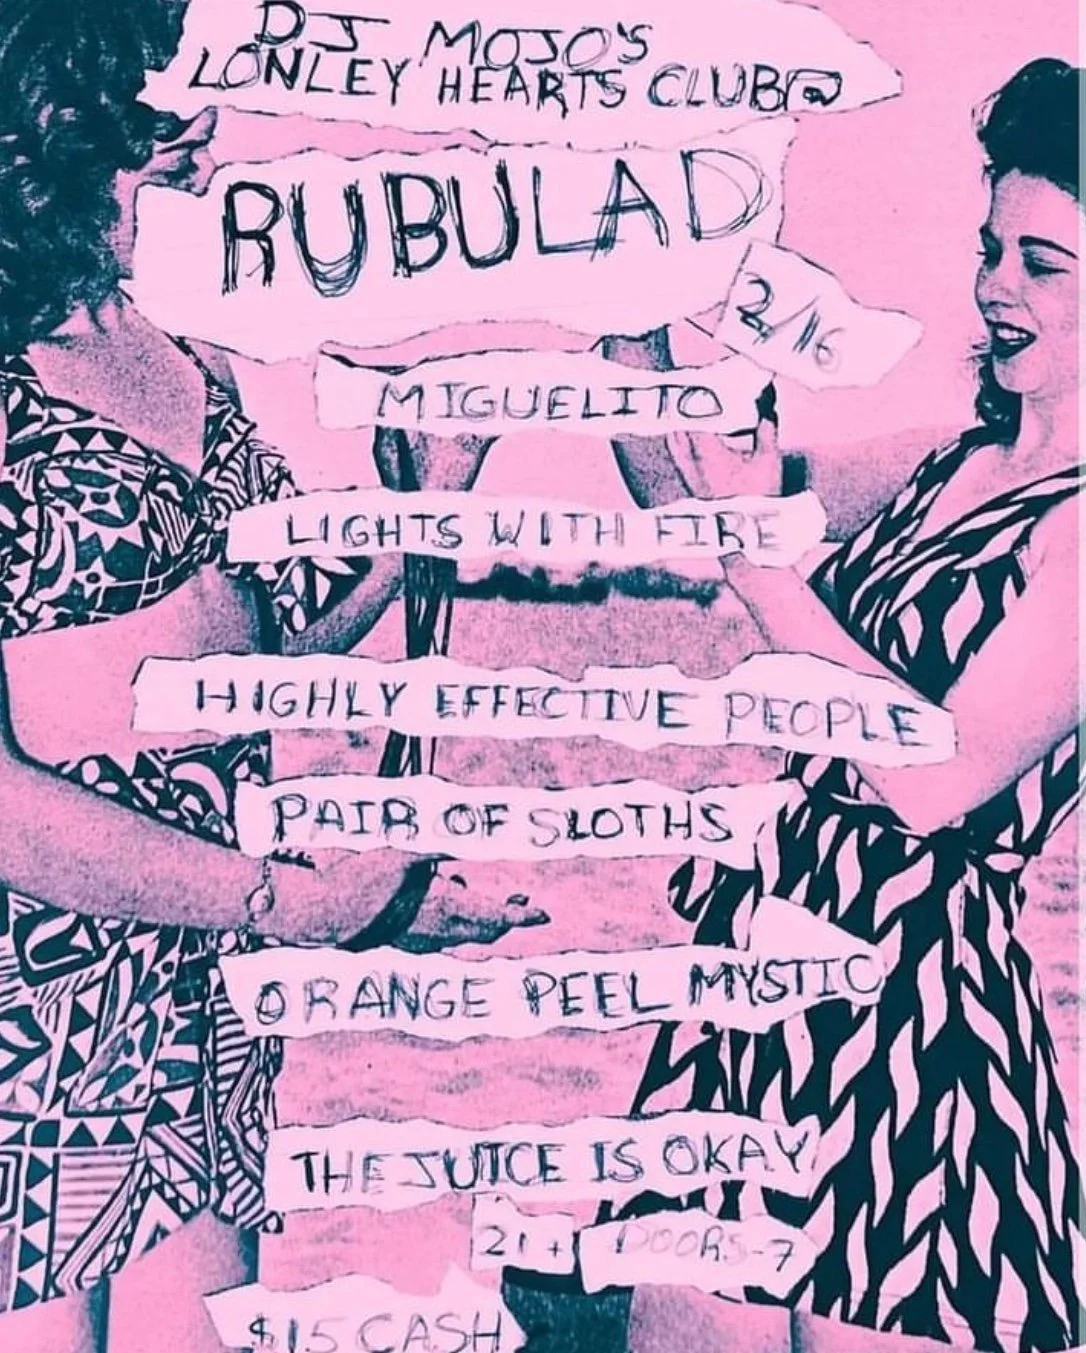 DJ MOJO'S
LONLEY HEARTS CLUB @
RUBULAD
2/16
MIGUELITO
LIGHTS WITH FIRE
HIGHLY EFFECTIVE PEOPLE
PAIR OF SLOTHS
ORANGE PEEL MYSTIC
THE JUICE IS OKAY
21+ DOORS-7
$15 CASH